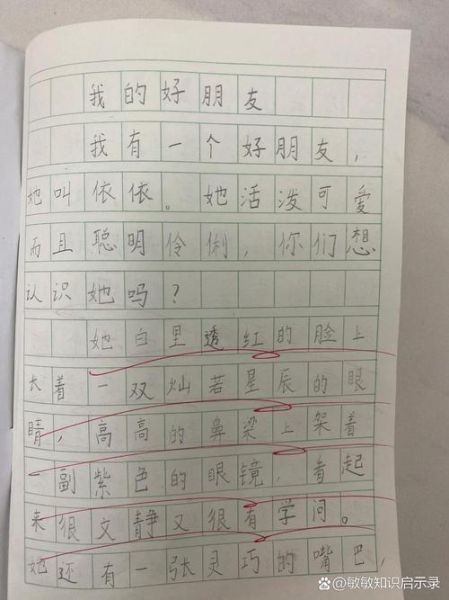 我的好朋友
我有一个好朋友，
她叫依依。她活泼可爱
而且聪明伶俐，你们想
认识她吗？
她白里透红的脸上
长着一双灿若星辰的眼
睛，高高的鼻梁上架着
一副紫色的眼镜，看起
来很文静又很有学问。
她还有一张灵巧的嘴巴，
@敏敏知识启示录